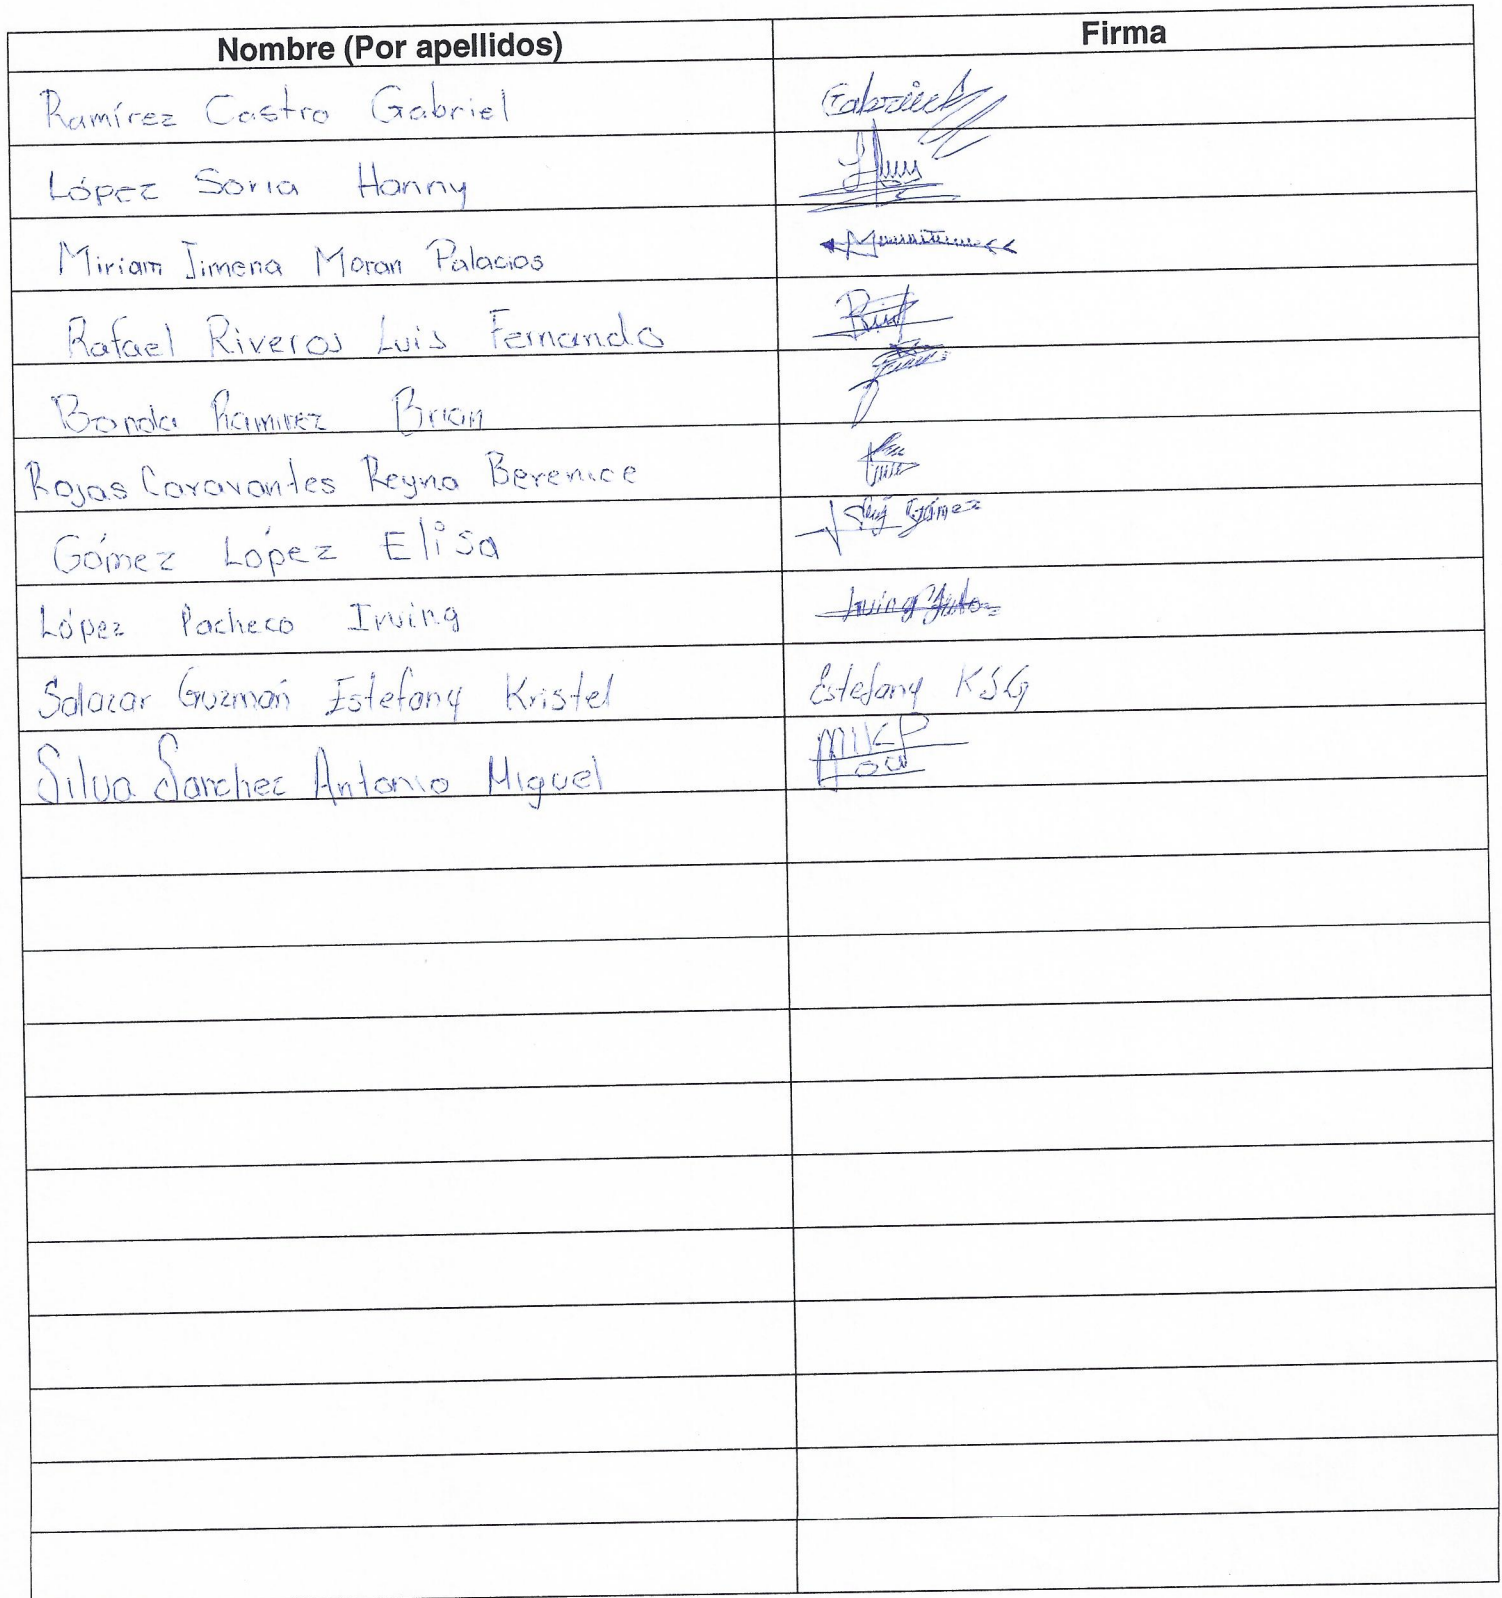 Nombre (Por apellidos) Firma
Ramírez Castro Gabriel
López Soria Hanny
Miriam Jimena Moran Palacios
Rafael Riveros Luis Fernando
Banda Ramirez Brian
Rojas Caravantes Reyna Berenice
Gómez López Elisa Gómez
López Pacheco Irving Irving
Salazar Guzmán Estefany Kristel Estefany KSG
Silva Sanchez Antonio Miguel